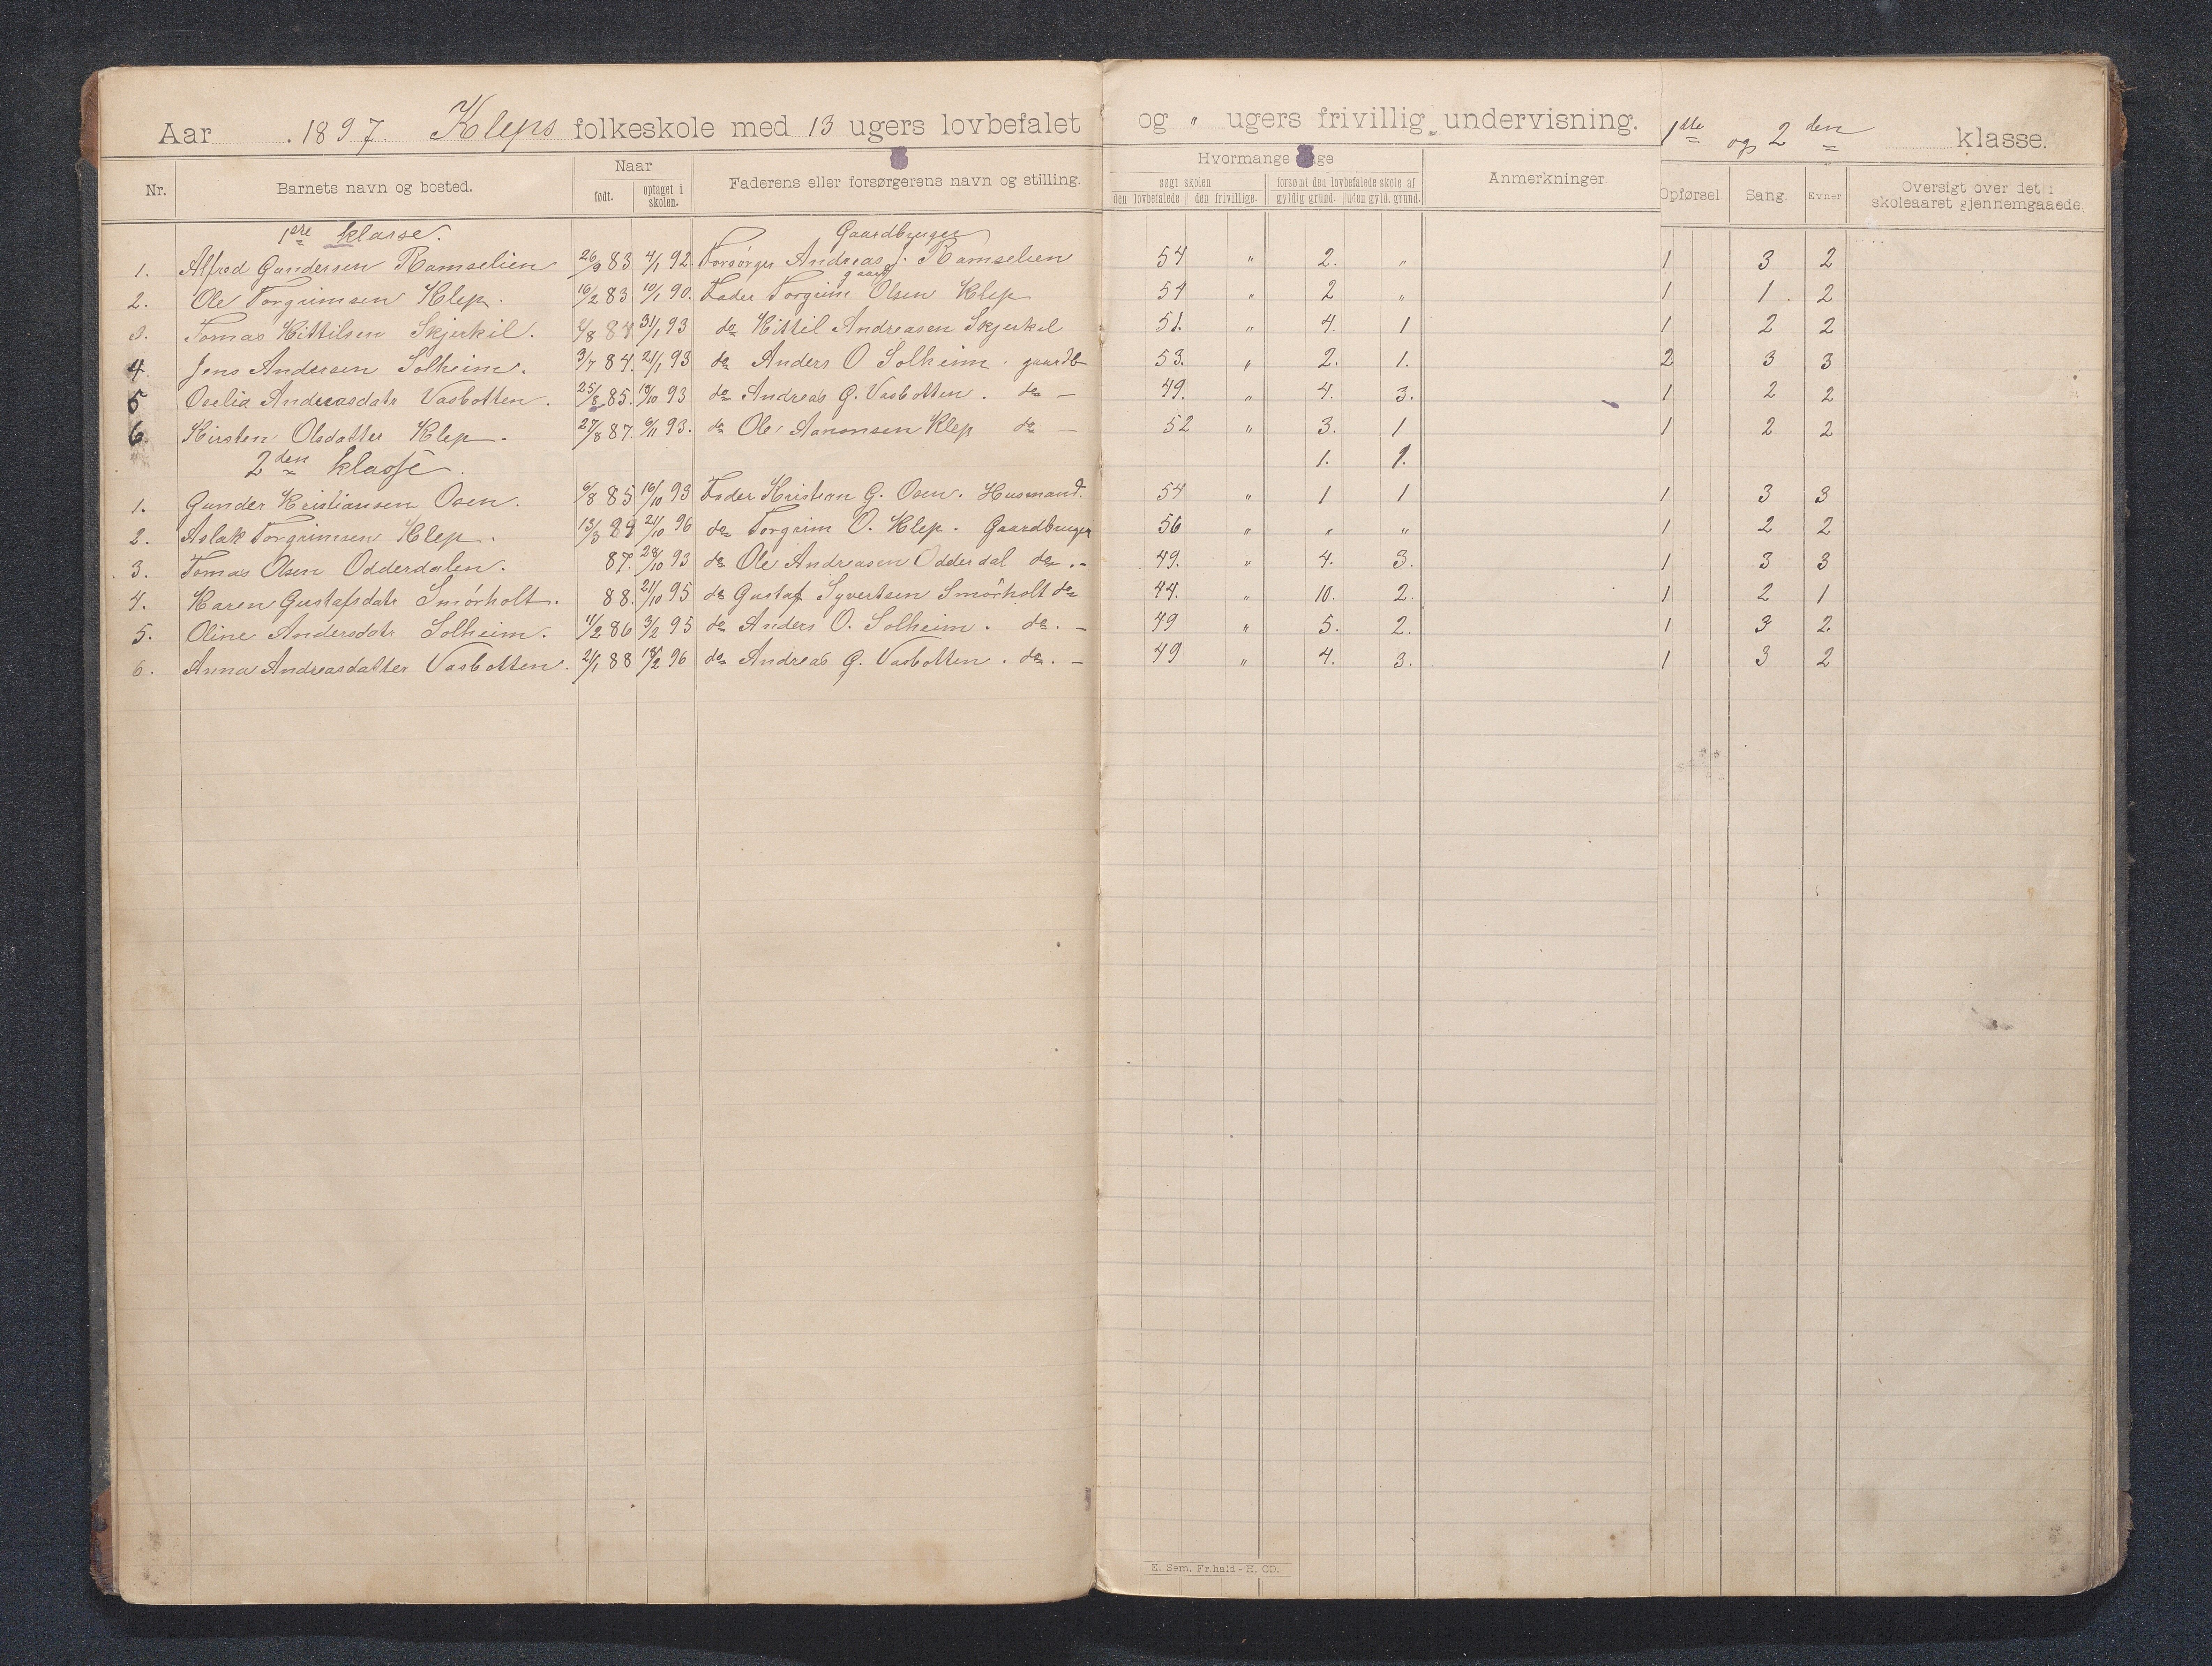 Aar 1897. Kleps folkeskole med 13 ugers lovbefalet og " ugers frivillig undervisning. 1ste og 2den klasse.
Nr. Barnets navn og bosted. Naar født. optaget i skolen. Faderens eller forsørgerens navn og stilling. Hvormange søgt skolen den lovbefalede den frivillige. forsømt den lovbefalede skole af gyldig grund. uden gyld. grund. Anmerkninger. Opførsel. Sang. Evner Oversigt over det i skoleaaret gjennemgaaede.
1ere klasse. Gaardbruger
1. Alfred Gundersen Ramselien 26/9 83 4/1 92. Forsørger Andreas J. Ramselien 54 " 2. " 1 3 2
gaardb
2. Ole Torgrimsen Klep. 16/2 83 10/1 90. Fader Torgrim Olsen Klep 54 " 2 " 1 1. 2
3. Tomas Kittilsen Skjerkil. /8 84 31/1 93 do Kittil Andreasen Skjerkil 51. " 4. 1 1 2 2
4. Jens Andersen Solheim. 3/7 84. 21/1 93 do Anders O Solheim. gaardb 53. " 2. 1. 2 3 3
5 Oselia Andreasdatr Vasbotten. 25/8 85. 19/10 93 do Andreas G. Vasbotten. do — 49. " 4. 3. 1 2 2
6. Kirsten Olsdatter Klep. 27/8 87. 6/11 93. do Ole Aanonsen Klep do — 52 " 3. 1 1 2 2
2den klasse. 1. 1.
1. Gunder Kristiansen Osen. 6/8 85 16/10 93 Fader Kristian G. Osen. Husmand. 54 " 1 1 1 3 3
2. Aslak Torgrimsen Klep. 13/3 89 21/10 96 do Torgrim O. Klep. Gaardbruger 56 " " " 1 2 2
3. Tomas Olsen Odderdalen. 87. 28/10 93 do Ole Andreasen Odderdal do. - 49. " 4. 3. 1 3 3
4. Karen Gustafsdatr Smørholt. 88. 21/10 95 do Gustaf Syvertsen Smørholt do 44. " 10. 2. 1 2 1
5. Oline Andersdatr Solheim. 11/2 86 3/2 95 do Anders O. Solheim. do. — 49 " 5. 2. 1 3 2.
6. Anna Andreasdatter Vasbotten. 21/1 88 18/2 96 do Andreas G. Vasbotten. do. — 49 " 4. 3. 1 3 2
E. Sem, Fr.hald - H. CD.